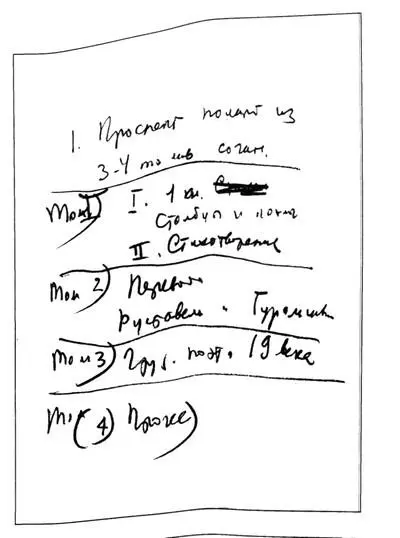 1. Проспект полагт из
3-4 томов сочин.
Том 1) I. 1 кн.
Столбцы и поэмы
II. Стихотворения
Том 2) Переводы
Руставели Гурамиш
Том 3) Груз. поэт. 19 века
Том (4) Проза)